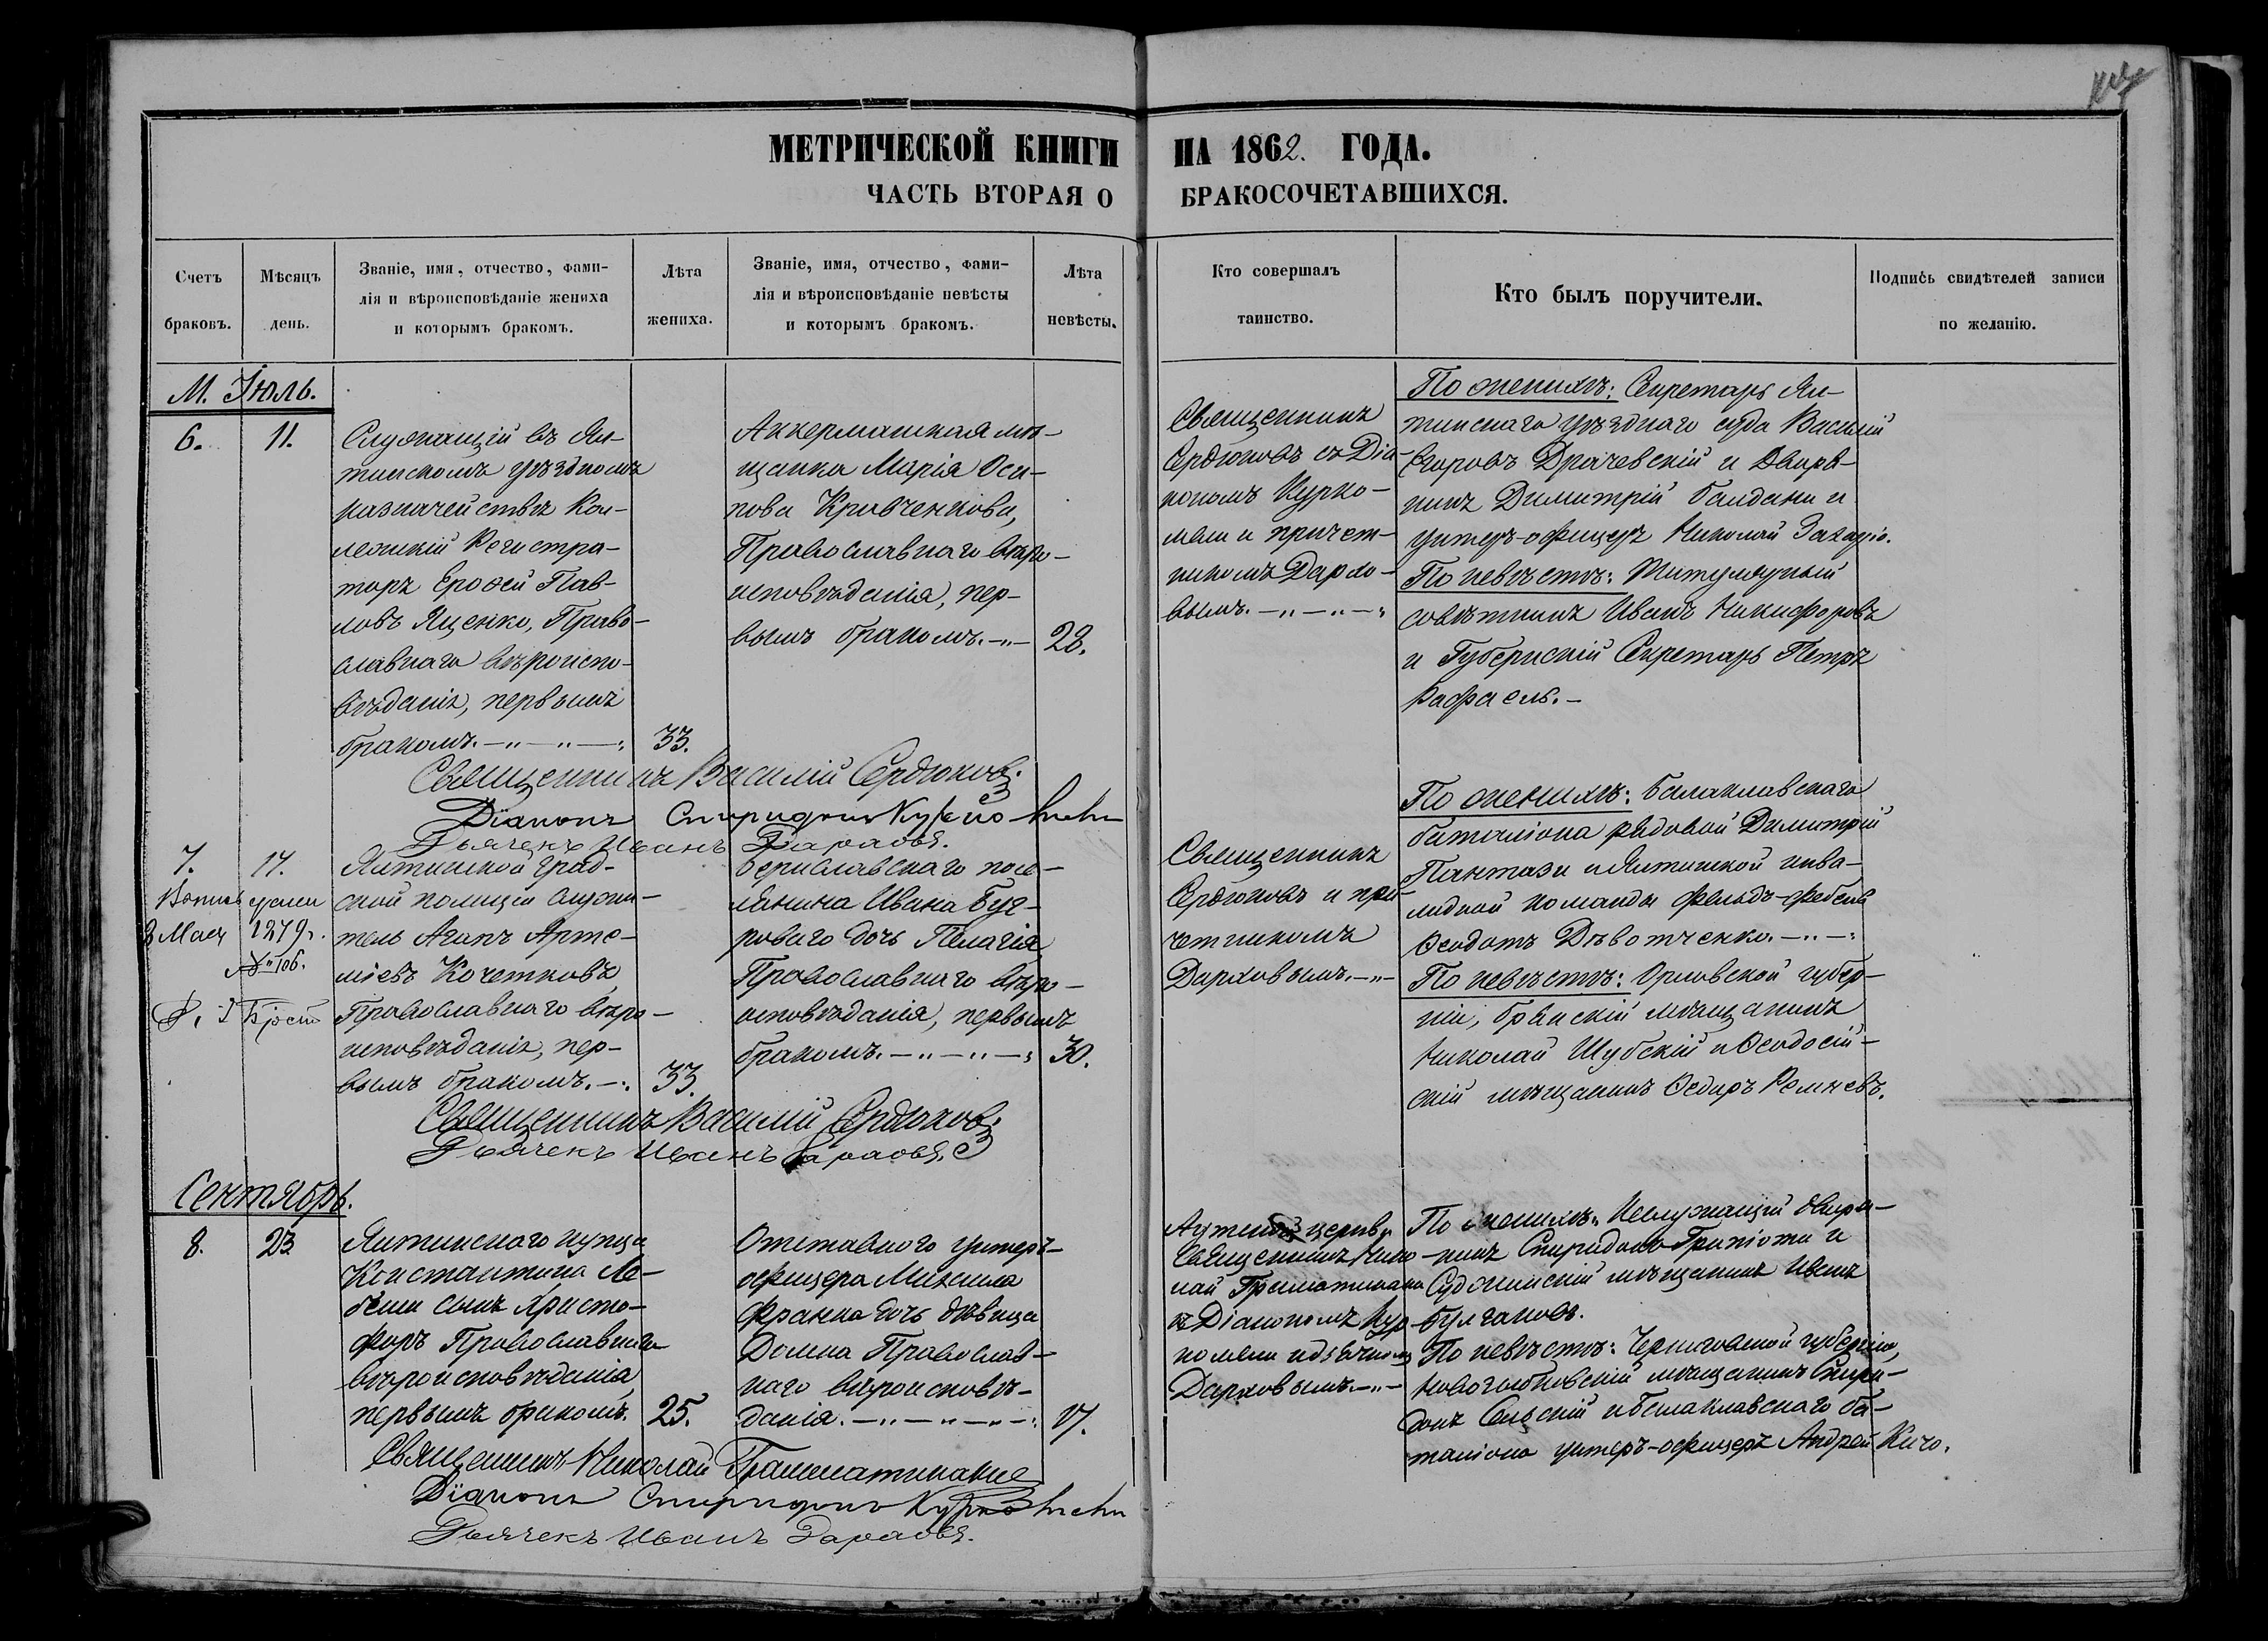 МЕТРИЧЕСКОЙ КНИГИ НА 1862. ГОДА.
ЧАСТЬ ВТОРАЯ О БРАКОСОЧЕТАВШИХСЯ.
Счетъ браковъ.
Мѣсяцъ день.
Званіе, имя, отчество, фами-
лія и вѣроисповѣданіе жениха
и которымъ бракомъ.
Лѣта
жениха.
Званіе, имя, отчество, фами-
лія и вѣроисповѣданіе невѣсты
и которымъ бракомъ.
Лѣта
невѣсты.
Кто совершалъ
таинство.
Кто былъ поручители.
Подпись свидѣтелей записи
по желанію.
М. Іюль.
6. 11.
Служащій въ Ял-
тинскомъ уѣздномъ
казначействѣ Кол-
лежскій Регистра-
торъ Ерофей Пав-
ловъ Яценко, Право-
славнаго вѣроиспо-
вѣданія, первымъ
бракомъ. 33.
Аккерманская мѣ-
щанка Марія Оси-
пова Кравченкова,
Православнаго вѣро-
исповѣданія, пер-
вымъ бракомъ. 28.
Священникъ
Сердюковъ съ Діа-
кономъ Курко-
мели и причет-
никомъ Дархо-
вымъ.
По женихѣ: Секретарь Ял-
тинскаго уѣзднаго суда Василій
Егоровъ Драчевскій и Дворя-
нинъ Димитрій Балдани и
унтеръ-офицеръ Николай
По невѣстѣ: Титулярный
совѣтникъ Иванъ Никифоровъ
и Губернскій Секретарь Петръ
Рафаель.
Священникъ Василій Сердюковъ
Діаконъ Спиридонъ
Дьячекъ Иванъ
7. 17.
8 Мая 1879 г.
№ 106.
Ялтинской град-
ской полиціи служи-
тель Агапъ Арте-
міевъ Кочетковъ
Православнаго вѣро-
исповѣданія, пер-
вымъ бракомъ. 33.
Бериславскаго посе-
лянина Ивана
дочь Пелагія
Православнаго вѣро-
исповѣданія, первымъ
бракомъ. 30.
Священникъ
Сердюковъ и при-
четникомъ
Дарховымъ.
По женихѣ: Балаклавскаго
баталіона рядовой Димитрій
Пантази и Ялтинской инва-
лидной команды фельдъ-фебель
Ѳеодотъ Дѣвотченко.
По невѣстѣ: Орловской губер-
ніи, Брянскій мѣщанинъ
Николай Шубскій и Ѳеодосій-
скій мѣщанинъ Ѳедоръ Ремневъ.
Священникъ Василій Сердюковъ
Дьячекъ Иванъ
Сентябрь.
8. 23
Ялтинскаго купца
Константина Ле-
сынъ Христо-
форъ Православнаго
вѣроисповѣданія
первымъ бракомъ. 25.
Отставного унтеръ-
офицера Михаила
Франка дочь дѣвица
Домна Православ-
наго вѣроисповѣ-
данія. 17.
церкви
Священникъ Нико-
лай
съ Діакономъ Кур-
комели и дьячкомъ
Дарховымъ.
По женихѣ: Неслужащій дворя-
нинъ Спиридонъ и
мѣщанинъ Иванъ
Булгаковъ.
По невѣстѣ: Черниговской губерніи,
мѣщанинъ Спири-
донъ и Балаклавскаго ба-
таліона унтеръ-офицеръ Андрей Кичо.
Священникъ Николай
Діаконъ Спиридонъ
Дьячекъ Иванъ